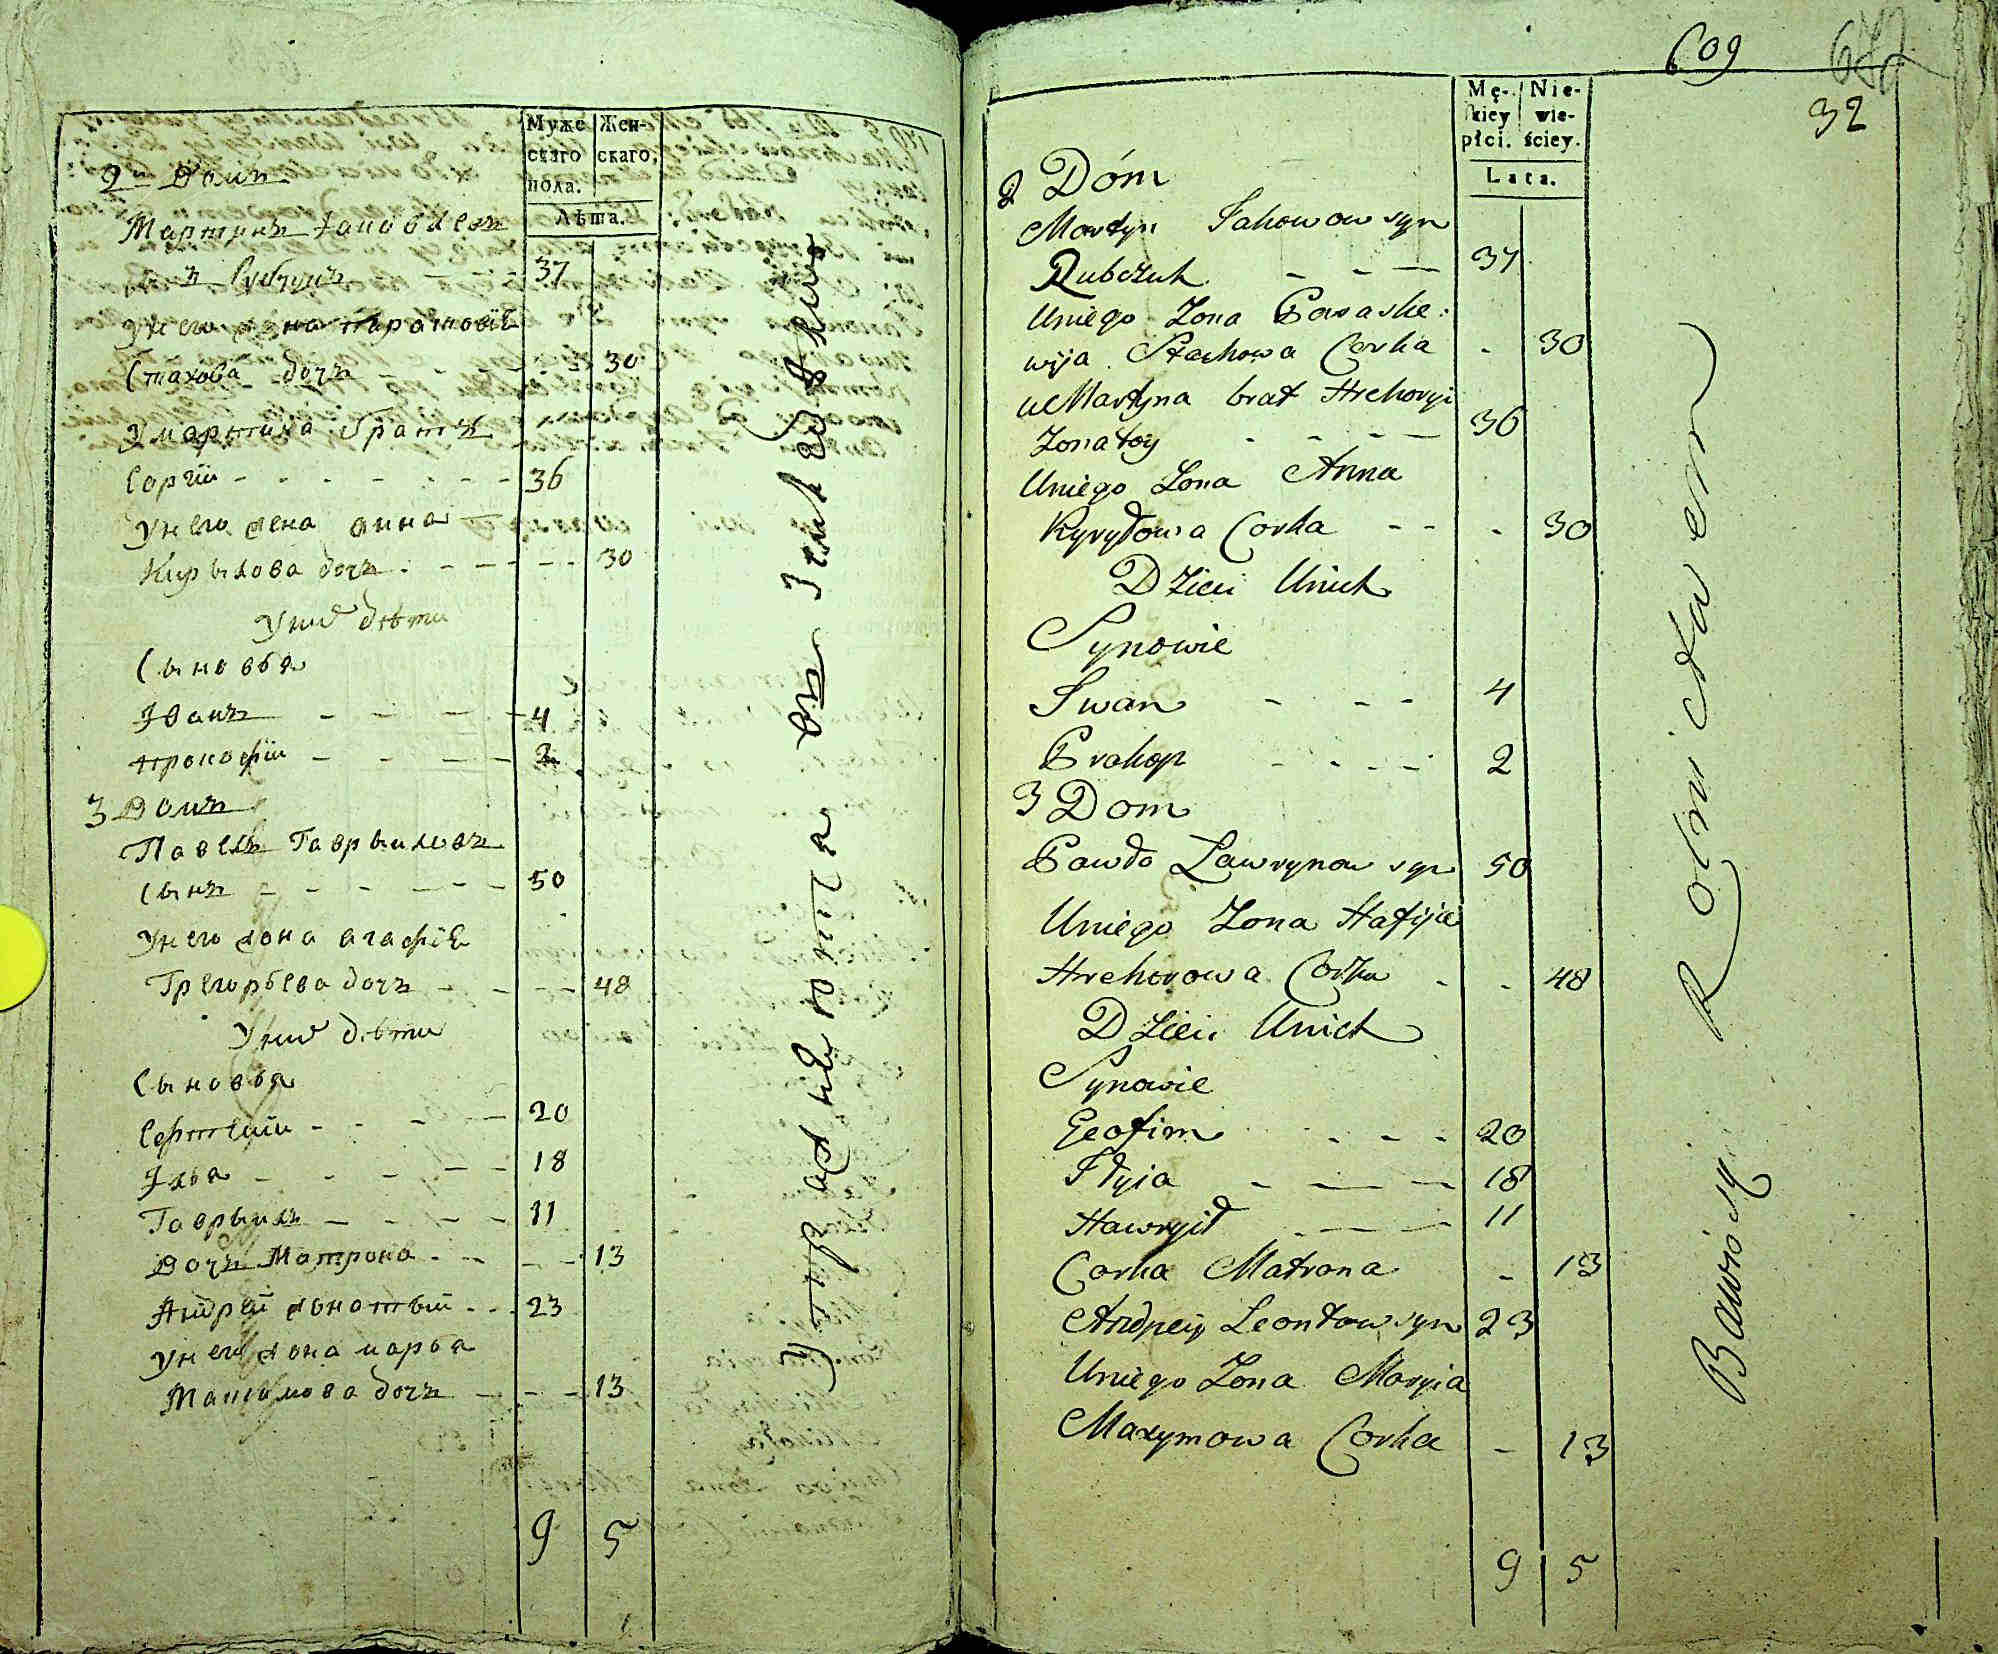 Муже
скаго
пола.
Жен-
скаго,
Лѣта.
2 Домъ
Мартинъ Яковлевъ
ъ Рубчукъ - - - 37
У него жена Парасковія
Стахова дочъ - - - 30
У мартина братъ
- - - - - - 36
У него жена анна
Кирылова дочъ - - - - 30
У них дѣти
Сыновья
Іванъ - - - - 4
прокофiи - - - - 2
3 Домъ
Павелъ Гаврыловъ
сынъ - - - - - 50
У него жона агафiя
Грегорьева дочъ - - - 48
У них дѣти
Сыновья
- - - - 20
Ілья - - - - 18
Гаврыилъ - - - - 11
Дочъ Матрона - - - - 13
Андрей жонатый - - 23
У него жона марья
Максимова дочъ - - - 13
9 5
Упражняются въ
609
32
Mę-
skiey
płci.
Nie-
wie-
ściey.
Lata.
2 Dóm
Martyn Jakowow syn
Rubczuk - - - 37
Uniego Zona Paraske:
wija Stachowa Corka - 30
u Martyna brat Hrehoryi
Zonatoy - - - - 36
Uniego Zona Anna
Kyryłowa Corka - - - 30
Dzieci Unich
Synowie
Iwan - - - 4
Prakop - - - - 2
3 Dom
Pawło Lawrynow syn 50
Uniego Zona Hafija
Hrehorowa Corka - - 48
Dzieci Unich
Synowie
Geofim - - - 20
Iłyia - - - 18
Hawryił - - - 11
Corka Matrona - 13
Andrey Leontow syn 23
Uniego Zona Maryia
Maxymowa Corka - 13
9 5
Bawią się Rolnictwem